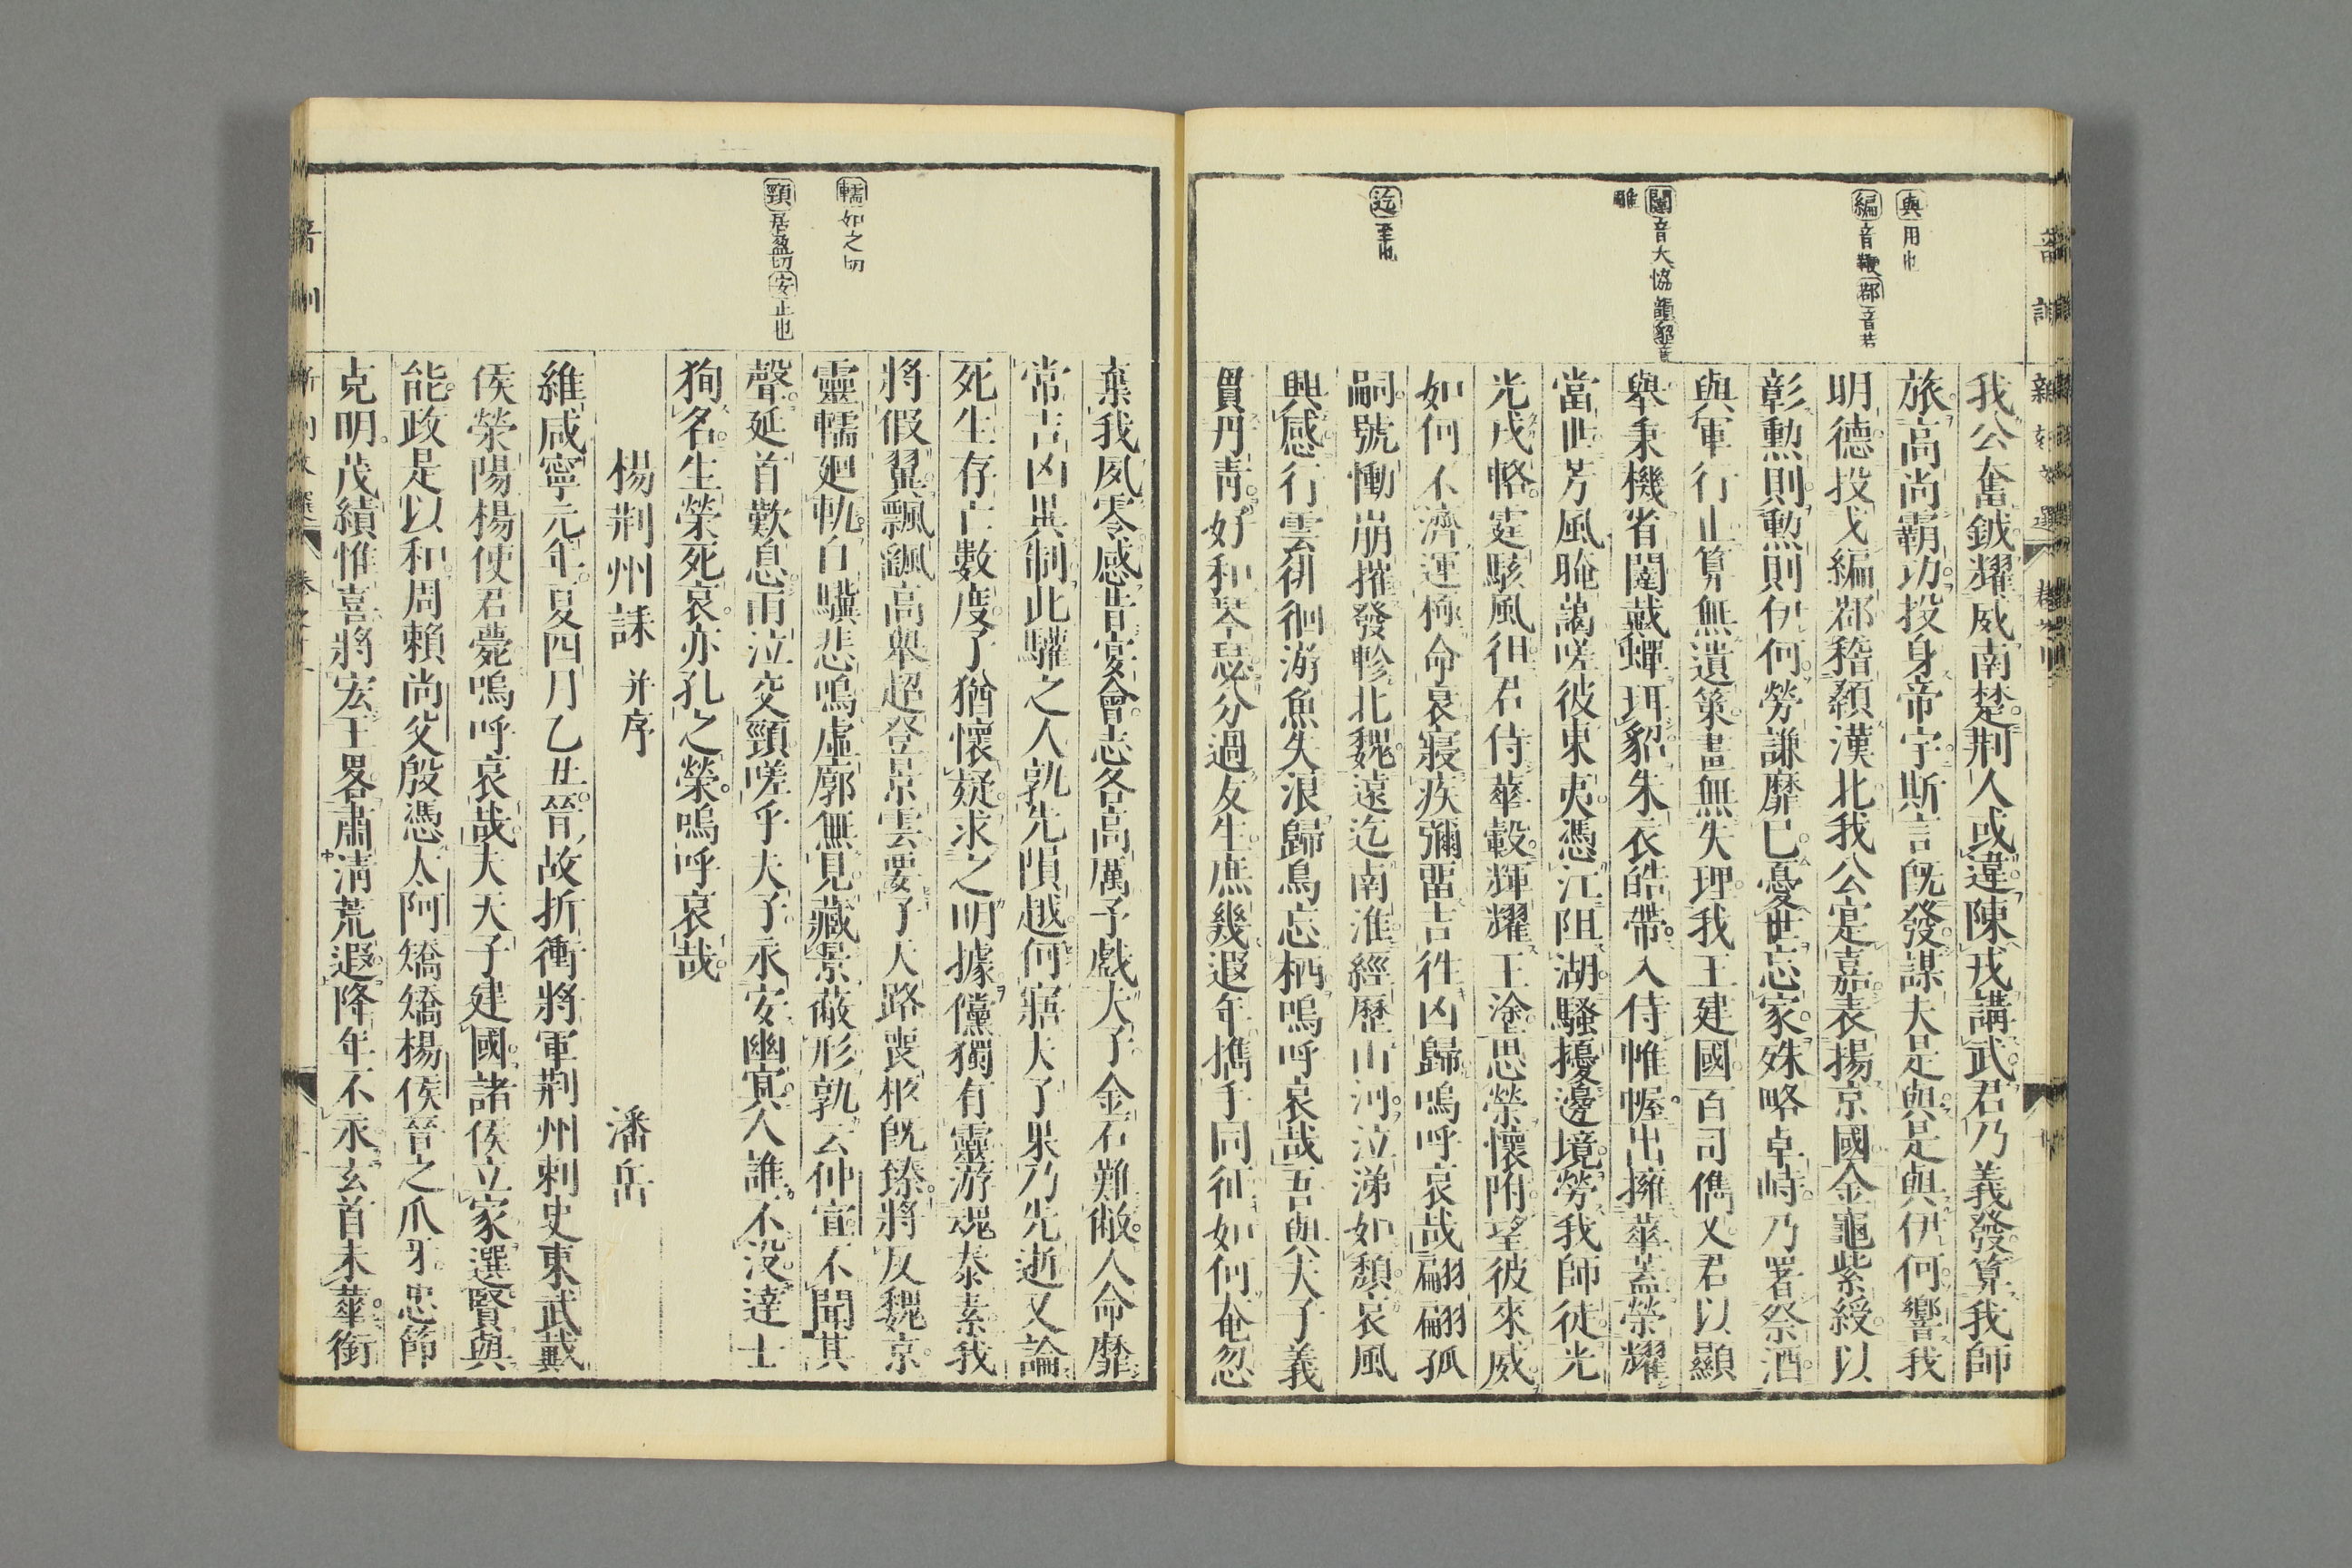 我公奮鉞耀威南楚荆人或違陳戎講武君乃義發算我師
旅高尚霸功投身帝宇斯言既發謀夫是與是與伊何響我
明德投戈編鄀稽顙漢北我公寔嘉表揚京國金龜紫綬以
彰勲則勲則伊何勞謙靡已憂世忘家殊略卓峙乃署祭酒
與軍行止算無遺策畫無失理我王建國百司儁乂君以顯
舉秉機省闥戴蟬珥貂朱衣皓帶入侍帷幄出擁華蓋榮耀
當世芳風晻藹嗟彼東夷憑江阻湖騷擾邊境勞我師徒光
光戎輅霆駭風徂君侍華轂輝耀王塗思榮懷附望彼來威
如何不濟運極命衰寢疾彌留吉徃凶歸嗚呼哀哉翩翩孤
嗣號慟崩摧發軫北魏遠迄南淮經歷山河泣涕如頹哀風
興感行雲徘徊游魚失浪歸鳥忘栖嗚呼哀哉吾與夫子義
貫丹青好和琴瑟分過友生庶幾遐年擕手同征如何奄忽
棄我夙零感昔宴會志各高厲予戲夫子金石難敝人命靡
常吉凶異制此驩之人孰先隕越何寤夫子果乃先逝又論
死生存亡數度子猶懷疑求之明據儻獨有靈游魂泰素我
將假翼飄飖高舉超登景雲要子天路喪柩既臻將反魏京
靈轜廻軌白驥悲鳴虛廓無見藏景蔽形孰云仲宣不聞其
聲延首歎息雨泣交頸嗟乎夫子永安幽冥人誰不没達士
狥名生榮死哀亦孔之榮嗚呼哀哉
楊荆州誄 并序 潘岳
維咸寧元年夏四月乙丑晉故折衝將軍荆州刺史東武戴
侯榮陽楊使君薨嗚呼哀哉夫天子建國諸侯立家選賢與
能政是以和周賴尚父殷憑太阿矯矯楊侯晉之爪牙忠節
克明茂績惟喜將宏王畧肅淸荒遐降年不永玄首未華銜
與 用也
編 音鞭 鄀 音若
闥 音大協
迄 至也
轜 如之切
頸 居盈切 安 止也